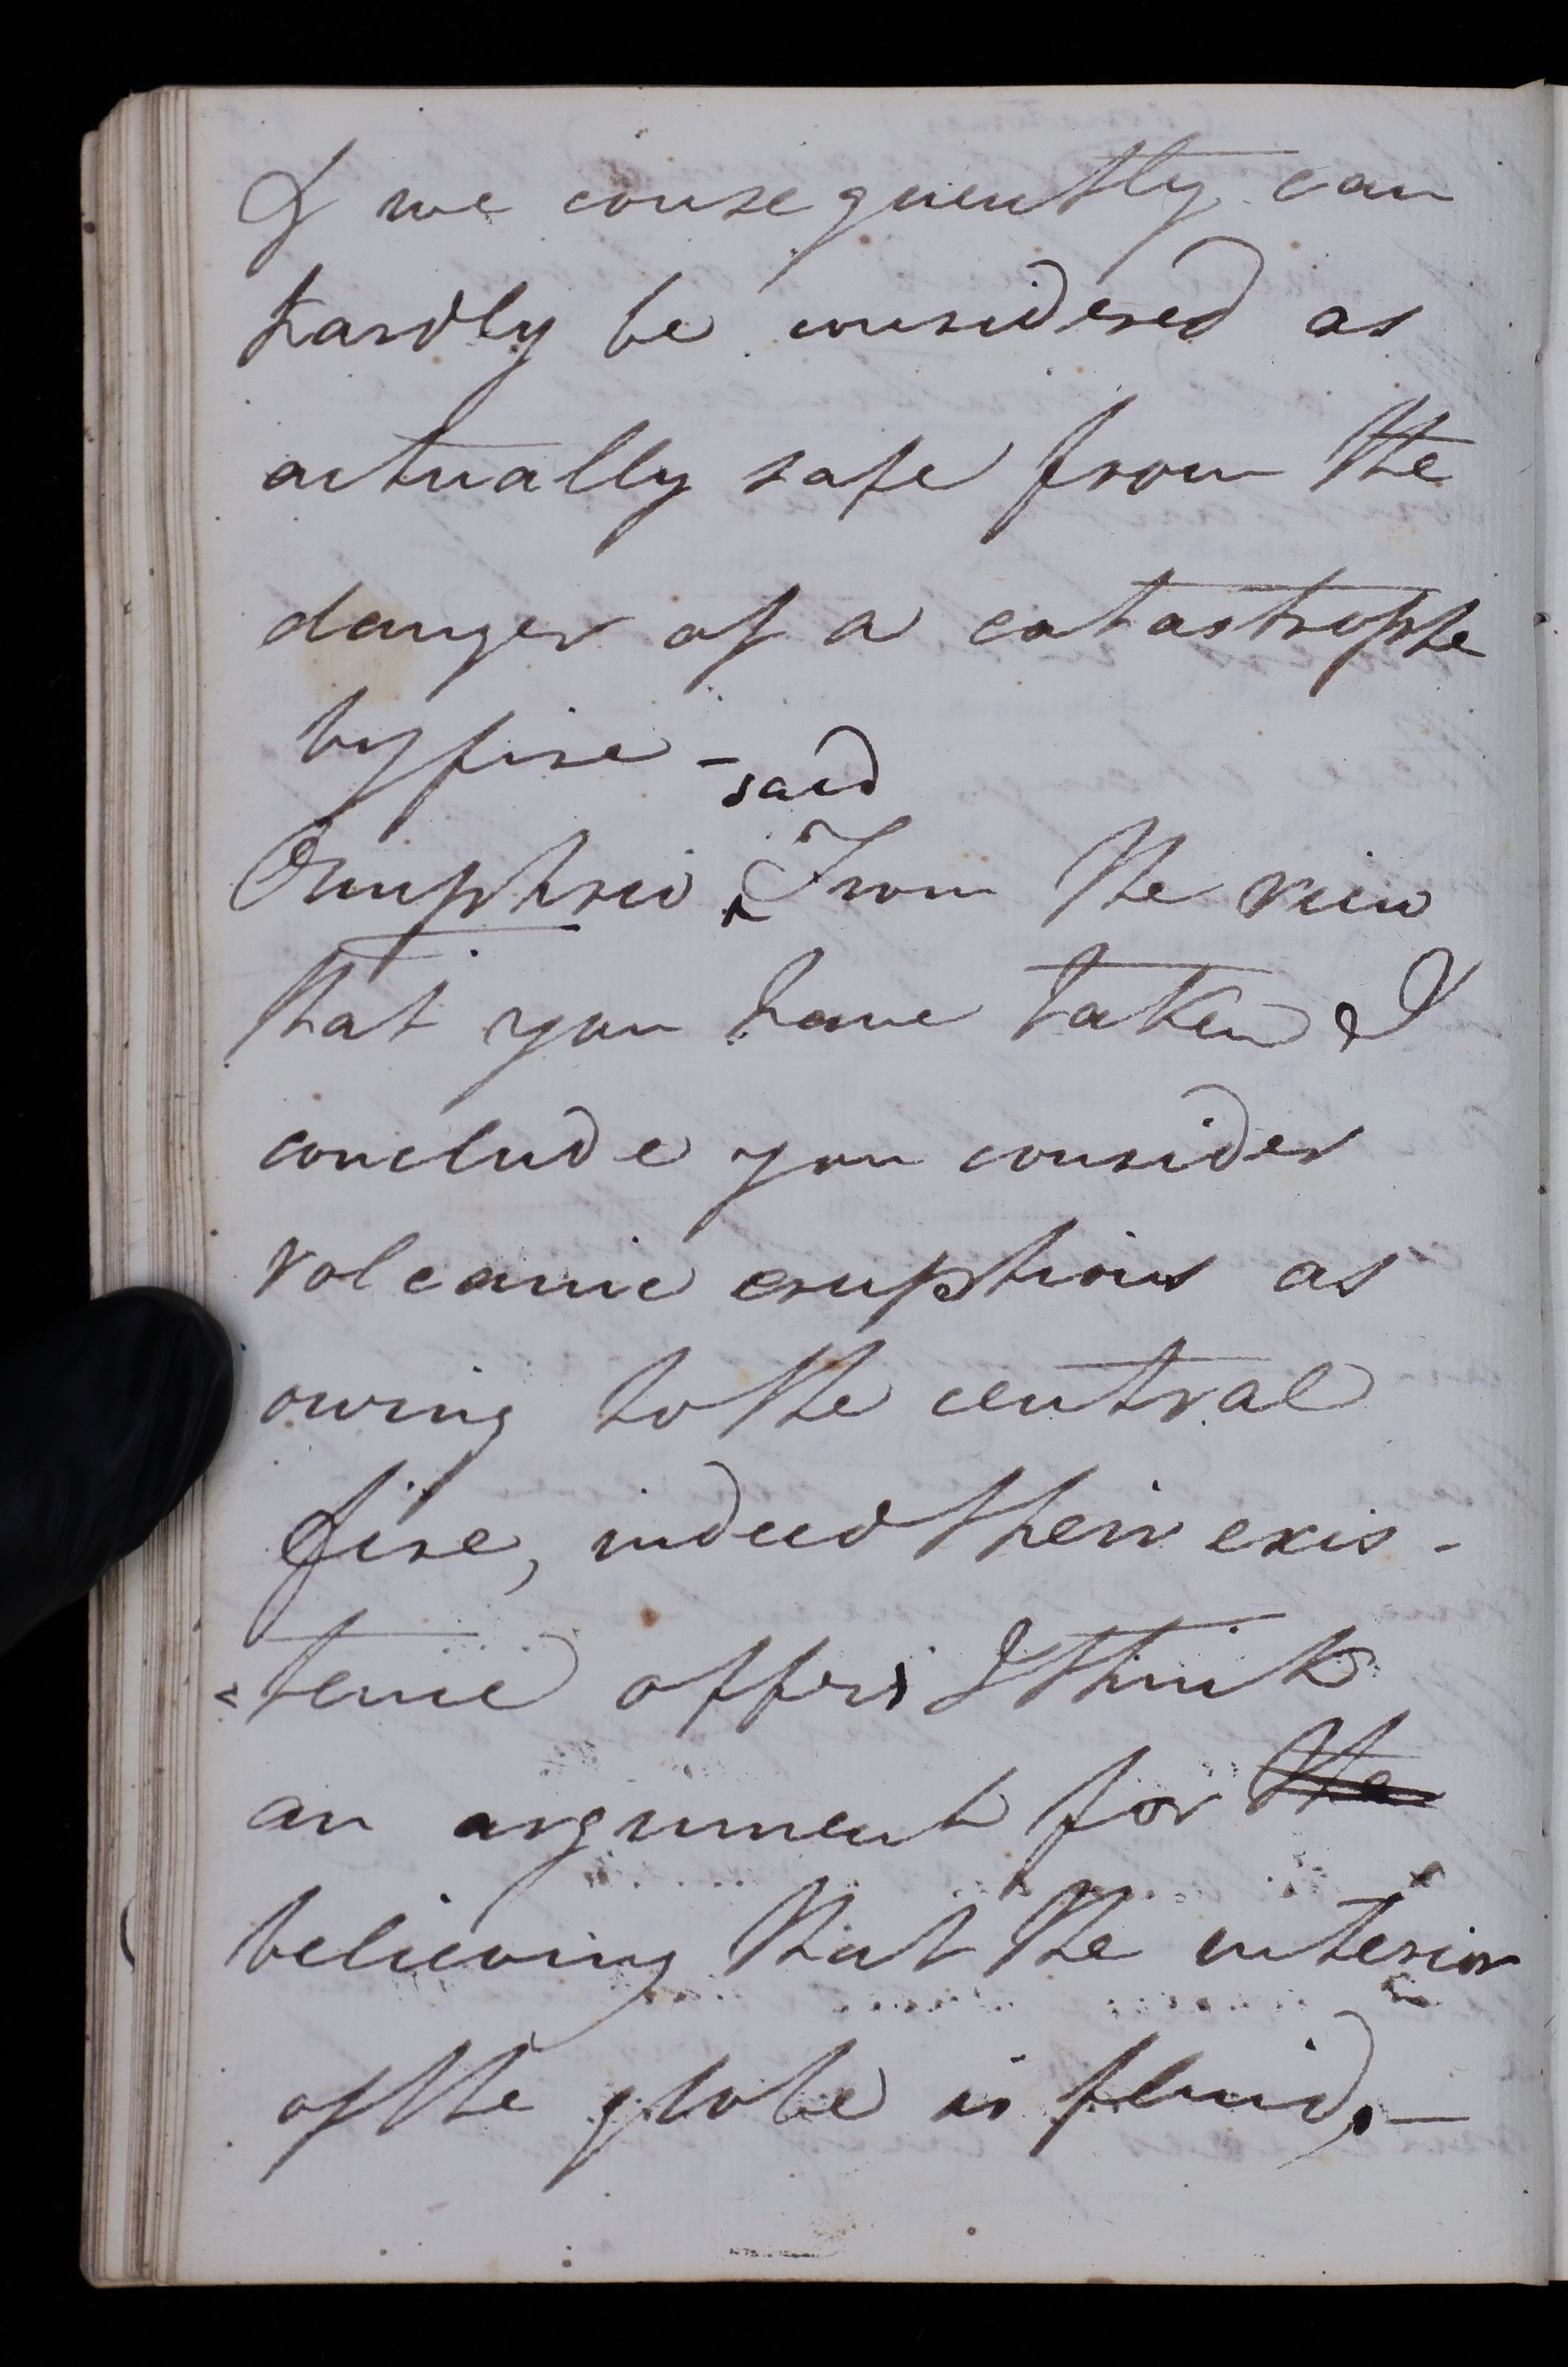 & we consequently can
hardly be considered as
actually safe from the
danger of a catastrophe
by fire –
said
Onuphrio From the view
that you have taken I
conclude you consider
volcanic eruptions as
owing to the central
fire, indeed their exis-
-tence offers I think
an argument for the
believing that the interior
of the globe is fluid. —